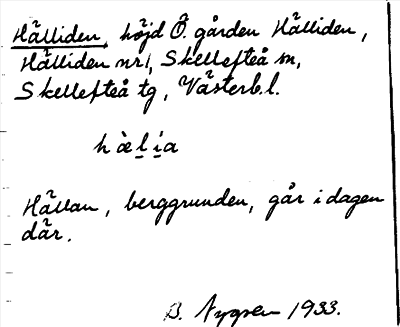 Hälliden, höjd Ö. gården Hälliden,
Hälliden nr 1, Skellefteå sn,
Skellefteå tg, Västerb. l.
hàlia
Hällan, berggrunden, går i dagen
där.
B. Nygren 1933.